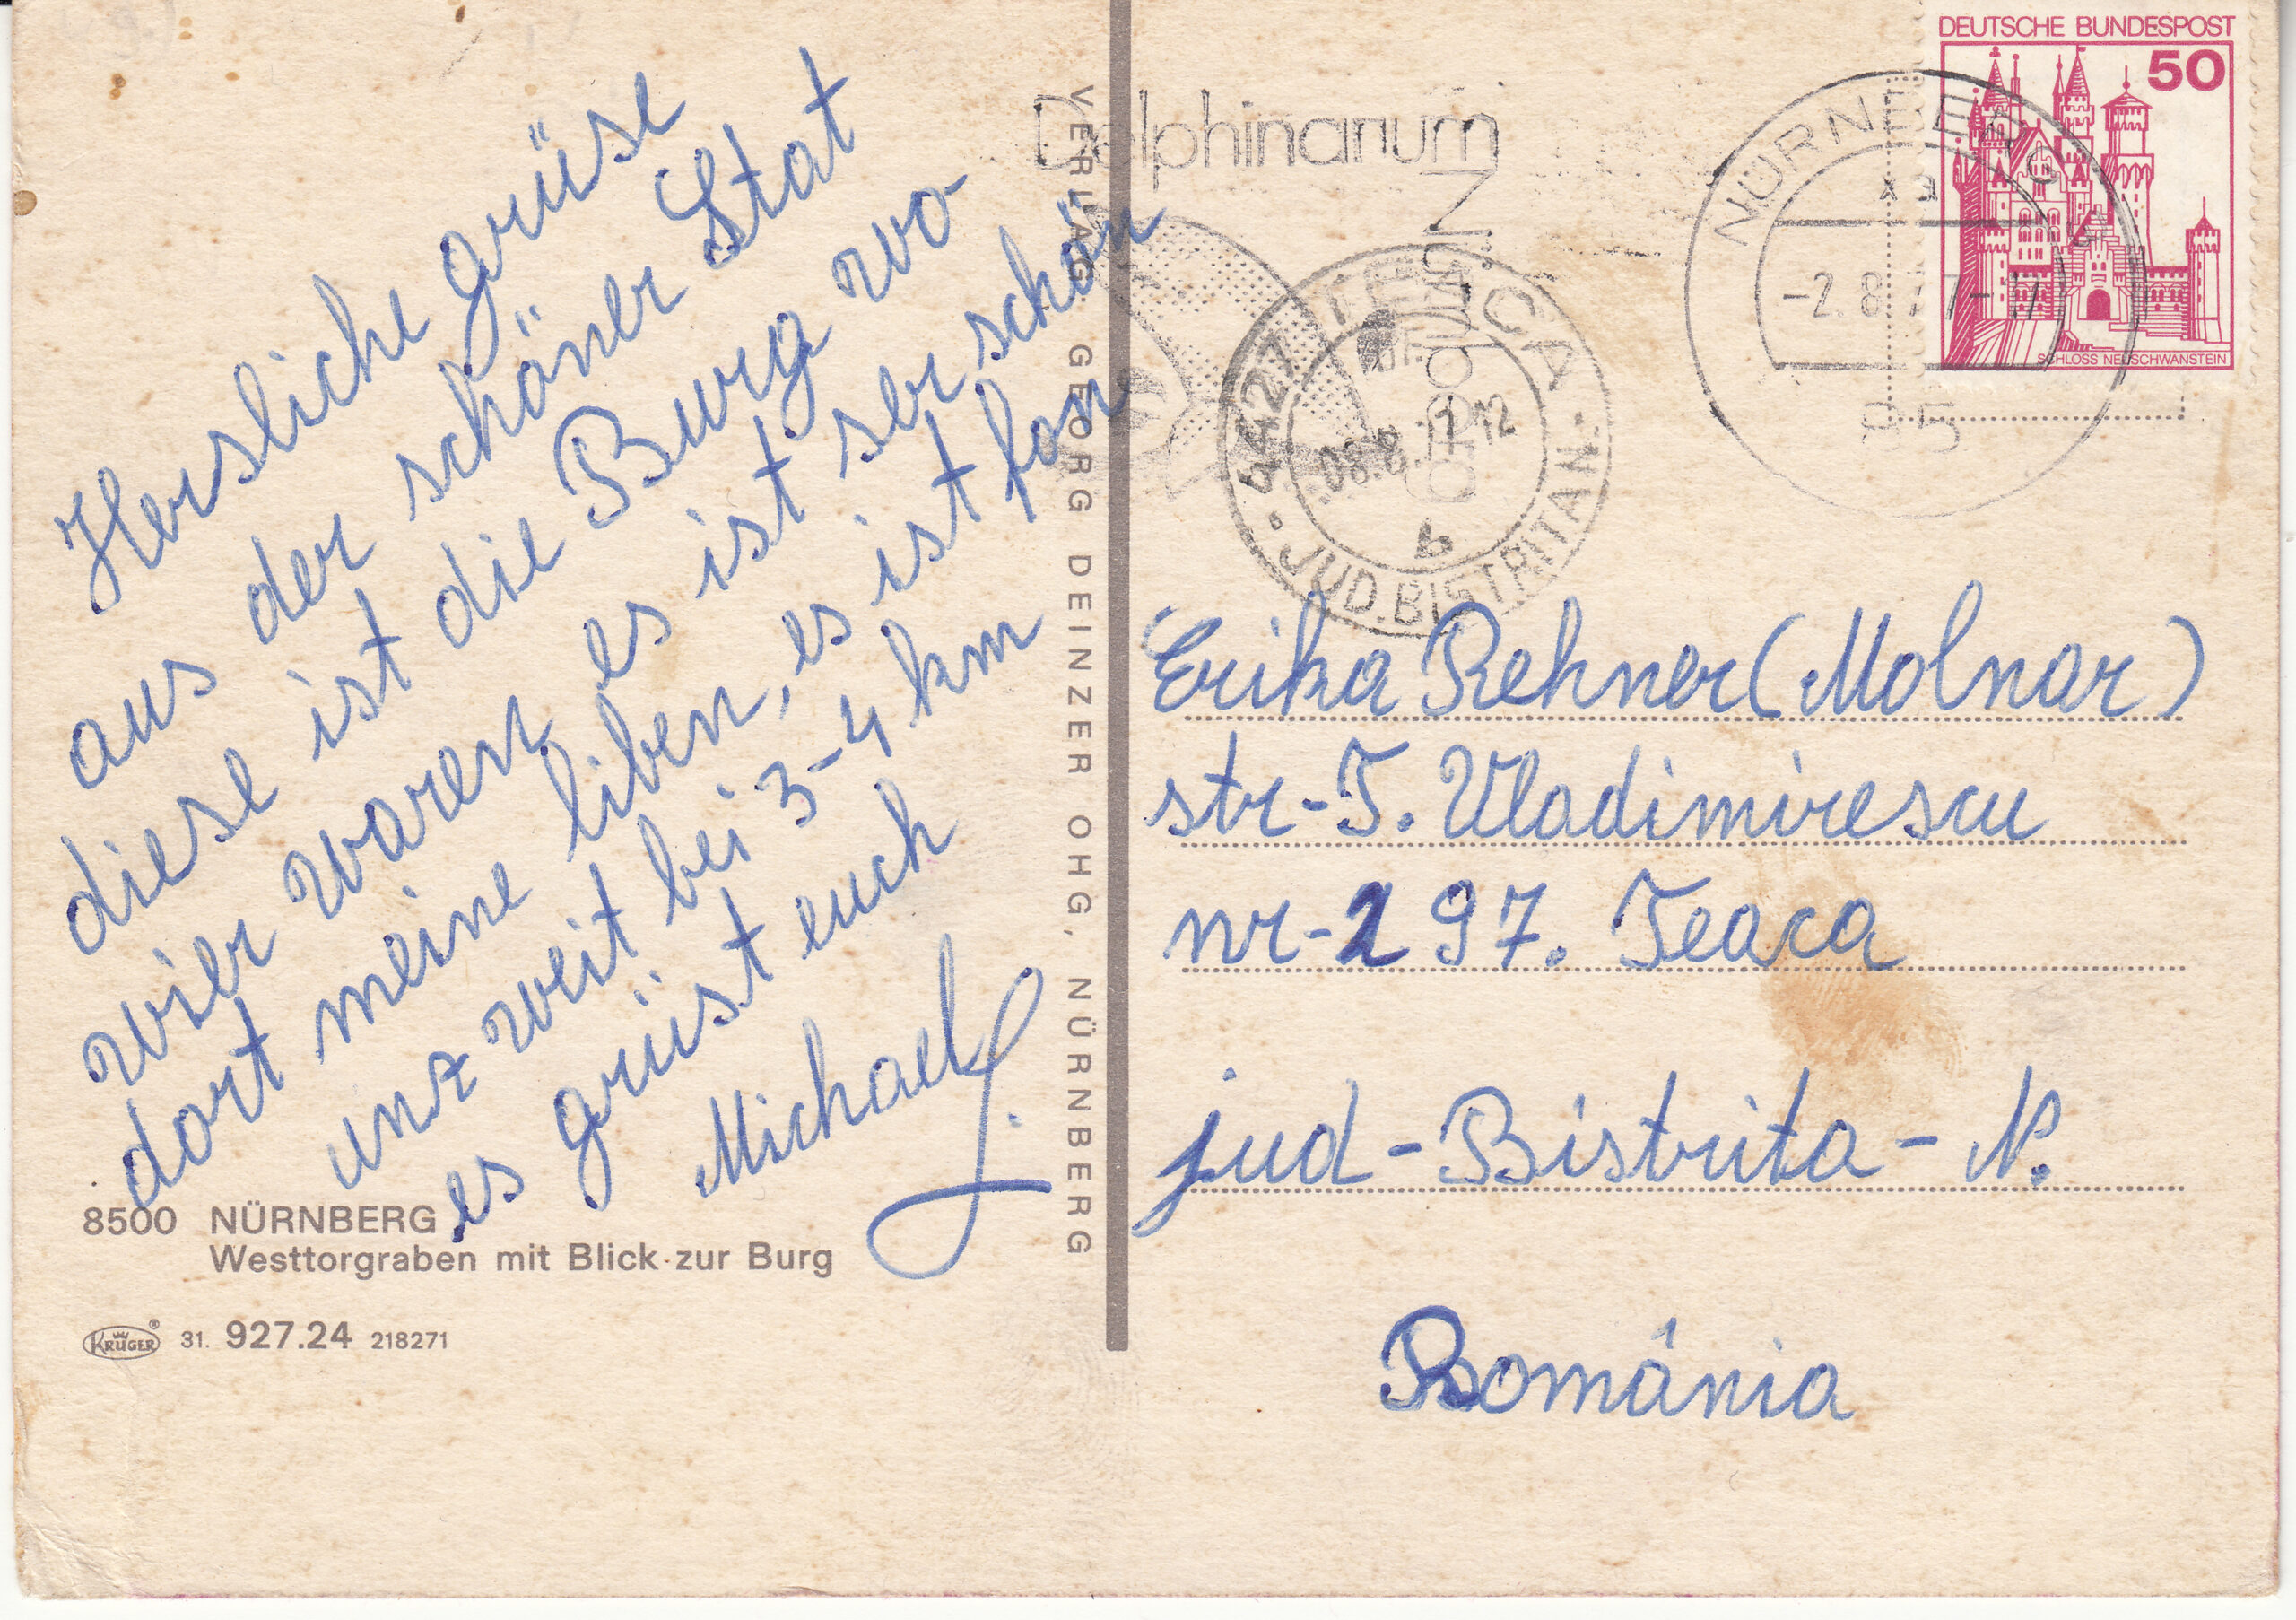 Hersliche grüse
aus der schöner Stat
diese ist die Burg wo
wier waren es ist ser schön
dort meine liben, es ist fon
unz weit bei 3-4 km
es grüst euch
Michael
8500 NÜRNBERG
Westtorgraben mit Blick zur Burg
KRÜGER® 31. 927.24 218271
VERLAG GEORG DEINZER OHG, NÜRNBERG
Delphinarium
NÜRNBERG
-2.8.77-17
85
4427 TEACA
08.8.77 12
JUD. BISTRITA N.
DEUTSCHE BUNDESPOST
50
SCHLOSS NEUSCHWANSTEIN
Erika Rehner (Molnar)
str-T. Vladimirescu
nr-297. Teaca
jud-Bistrita-N.
România